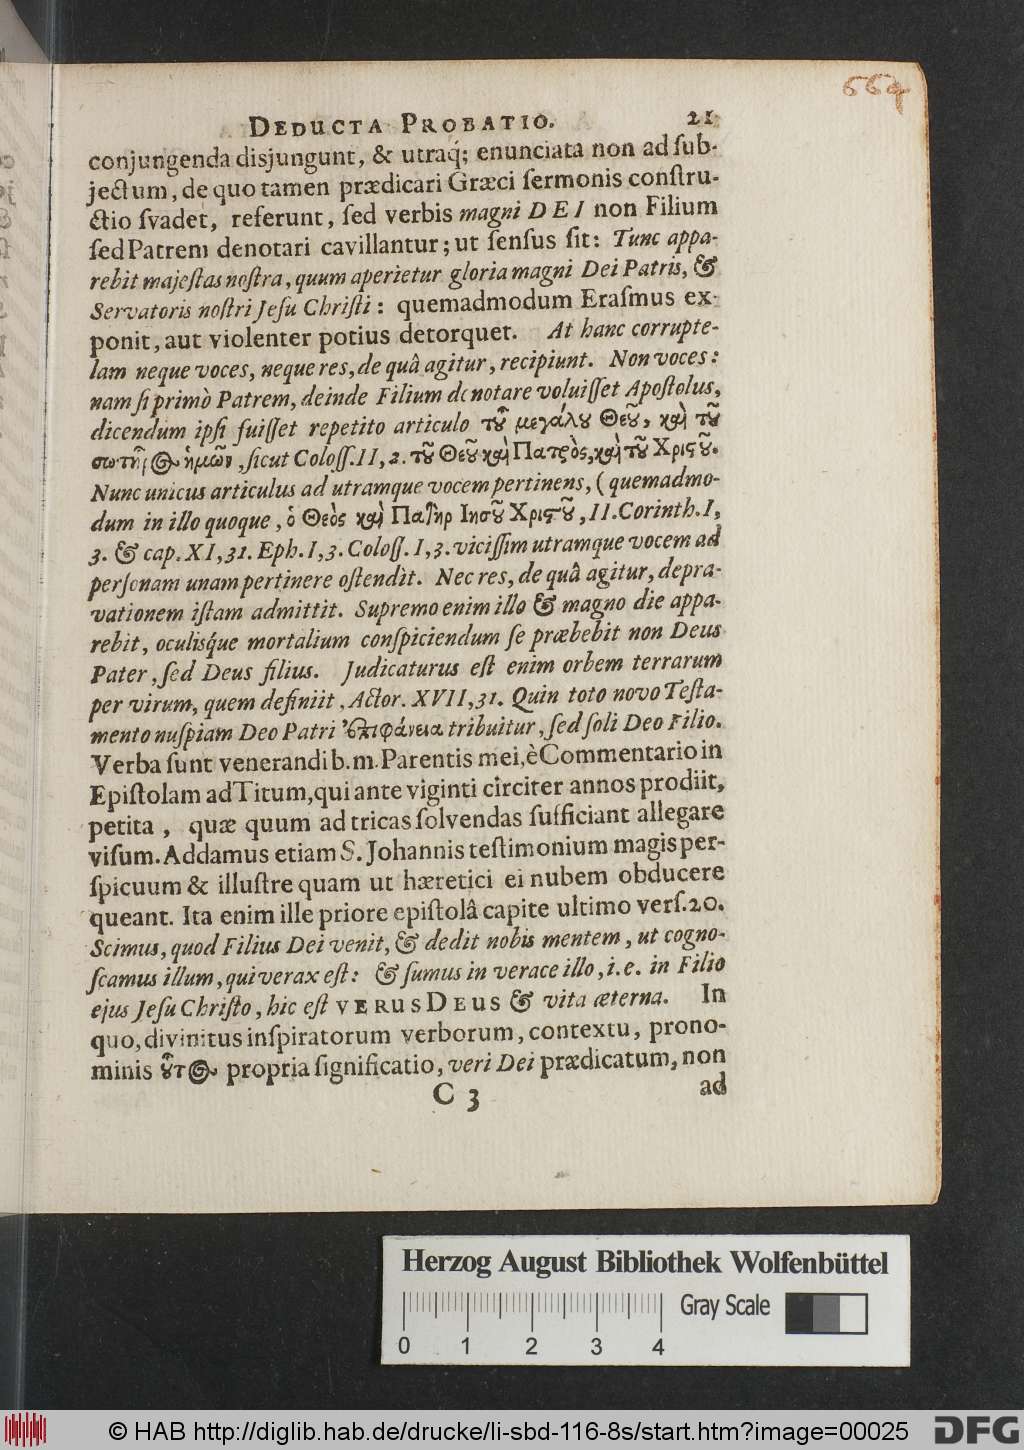 669
DEDUCTA PROBATIO. 21
conjungenda disjungunt, & utraq́; enunciata non ad ſub-
jectum, de quo tamen prædicari Græci ſermonis conſtru-
ctio ſvadet, referunt, ſed verbis magni DEI non Filium
ſed Patrem denotari cavillantur; ut ſenſus ſit: Tunc appa-
rebit majeſtas noſtra, quum aperietur gloria magni Dei Patris, &
Servatoris noſtri Jeſu Chriſti: quemadmodum Eraſmus ex-
ponit, aut violenter potius detorquet. At hanc corrupte-
lam neque voces, neque res, de quâ agitur, recipiunt. Non voces:
nam ſi primò Patrem, deinde Filium denotare voluiſſet Apoſtolus,
dicendum ipſi fuiſſet repetito articulo τȣ͂ μεγάλȣ Θεȣ͂, καὶ τȣ͂
σωτῆρος ἡμῶν, ſicut Coloſſ. II, 2. τȣ͂ Θεȣ͂ καὶ Πατρὸς, καὶ τȣ͂ Χριϛȣ͂.
Nunc unicus articulus ad utramque vocem pertinens, (quemadmo-
dum in illo quoque, ὁ Θεὸς καὶ Πατὴρ Ιησȣ͂ Χριϛȣ͂, II. Corinth. I,
3. & cap. XI, 31. Eph. I, 3. Coloſſ. I, 3. viciſſim utramque vocem ad
perſonam unam pertinere oſtendit. Nec res, de quâ agitur, depra-
vationem iſtam admittit. Supremo enim illo & magno die appa-
rebit, oculisq́ue mortalium conſpiciendum ſe præbebit non Deus
Pater, ſed Deus filius. Judicaturus eſt enim orbem terrarum
per virum, quem definiit, Actor. XVII, 31. Quin toto novo Teſta-
mento nuſpiam Deo Patri ἐπιφάνεια tribuitur, ſed ſoli Deo Filio.
Verba ſunt venerandi b.m. Parentis mei, è Commentario in
Epiſtolam ad Titum, qui ante viginti circiter annos prodiit,
petita, quæ quum ad tricas ſolvendas ſufficiant allegare
viſum. Addamus etiam S. Johannis teſtimonium magis per-
ſpicuum & illuſtre quam ut hæretici ei nubem obducere
queant. Ita enim ille priore epiſtolâ capite ultimo verſ. 20.
Scimus, quod Filius Dei venit, & dedit nobis mentem, ut cogno-
ſcamus illum, qui verax eſt: & ſumus in verace illo, i.e. in Filio
ejus Jeſu Chriſto, hic eſt VERUS DEUS & vita æterna. In
quo, divinitus inſpiratorum verborum, contextu, prono-
minis ȣ̔͂τος propria ſignificatio, veri Dei prædicatum, non
C 3 ad
Herzog August Bibliothek Wolfenbüttel
Gray Scale
0 1 2 3 4
© HAB http://diglib.hab.de/drucke/li-sbd-116-8s/start.htm?image=00025 DFG